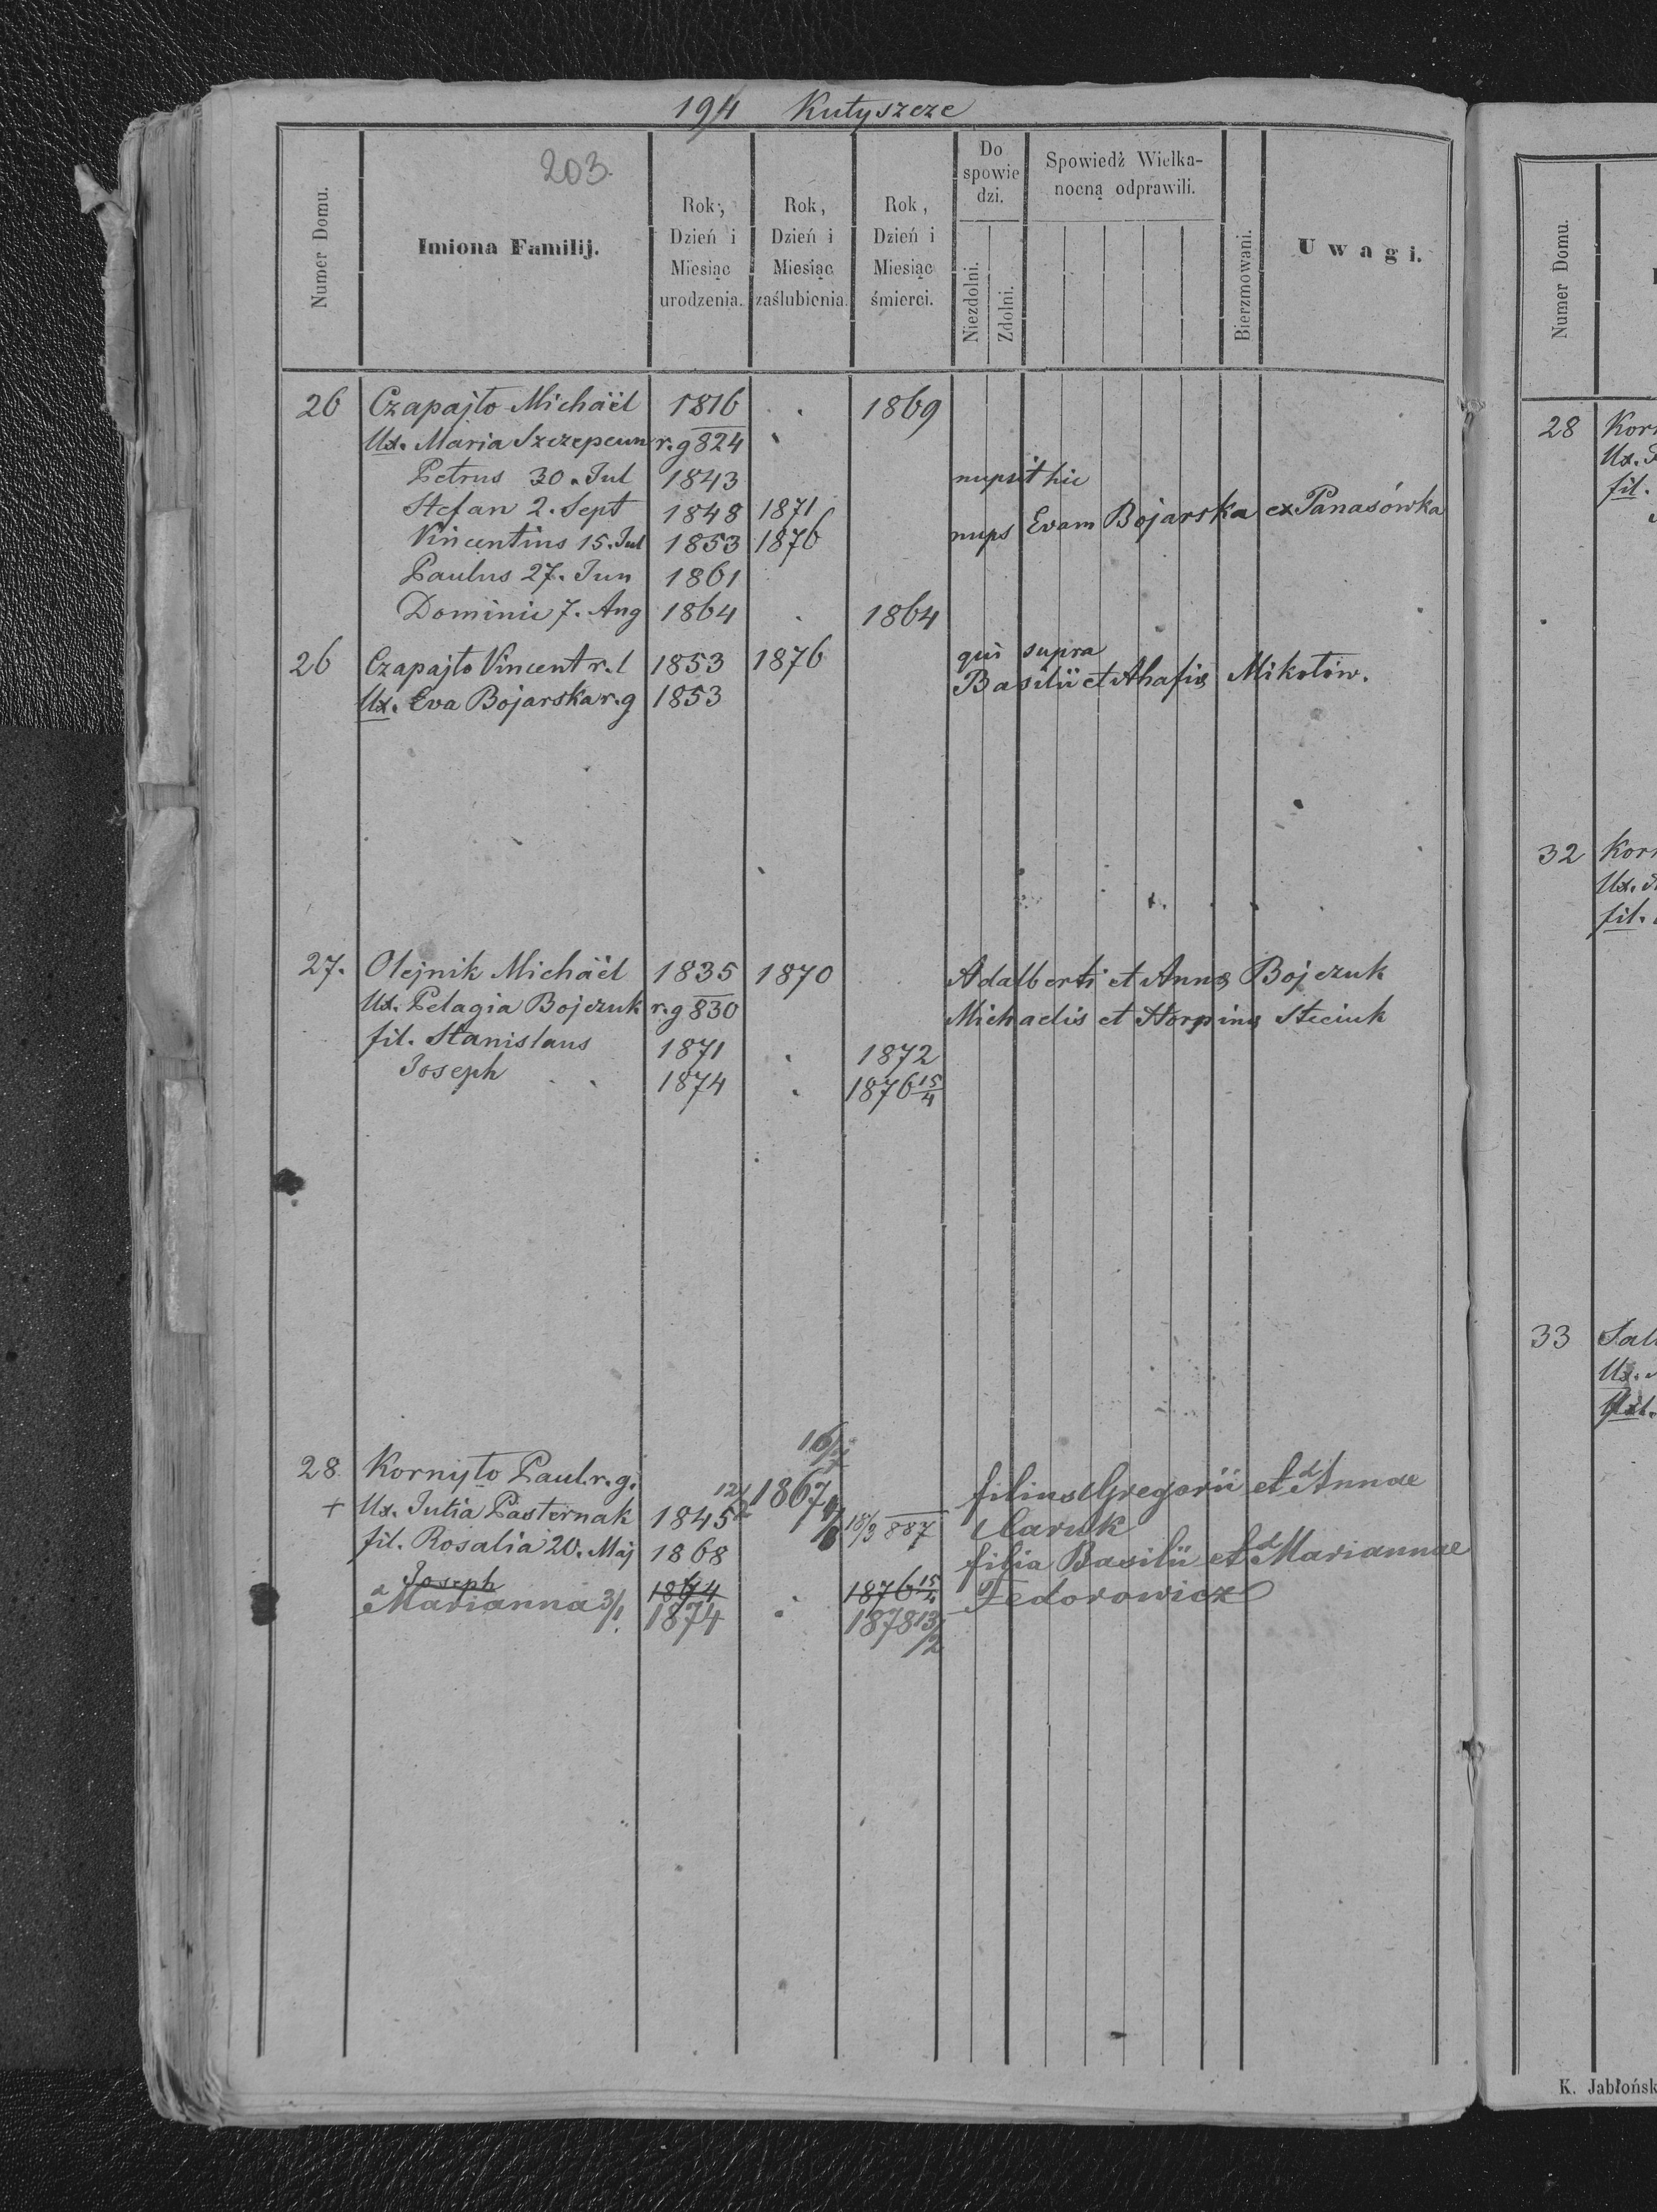 194 Kutyszcze
203.
Numer Domu.
Imiona Familij.
Rok, Dzień i Miesiąc urodzenia.
Rok, Dzień i Miesiąc zaślubienia.
Rok, Dzień i Miesiąc śmierci.
Do spowie dzi.
Niezdolni.
Zdolni.
Spowiedź Wielkanocną odprawili.
Bierzmowani.
Uwagi.
26 Czapajło Michaël 1816 1869
Ux. Maria Szczepcun r.g 824
Petrus 30. Jul 1843 nupsit hic
Stefan 2. Sept 1848 1871
Vincentius 15. Jul 1853 1876 nups Evam Bojarska ex Panasówka
Paulus 27. Jun 1861
Dominic 7. Aug 1864 1864
26 Czapajło Vincent r.l 1853 1876 qui supra
Ux. Eva Bojarska r.g 1853 Basilii et Ahafiæ Mikołów.
27. Olejnik Michaël 1835 1870 Adalberti et Annæ Bojczuk
Ux. Pelagia Bojczuk r.g 830 Michaelis et Horpinæ Steciuk
fil. Stanislaus 1871 1872
Joseph 1874 1876 15/4
28. Kornyło Paul. r.g. 1867 filius Gregorii et Annae
+ Ux. Julia Pasternak 1845 18/3 887
fil. Rosalia 20. Maj 1868 filia Basilii et Mariannae
Joseph 1874 1876 15/4 Fedorowicz
Marianna 3/1. 1874 1878 13/2
Numer Domu.
28 Kor
Ux.
fil.
32 Kor
Ux.
fil.
33
Ux.
K. Jabłońsk